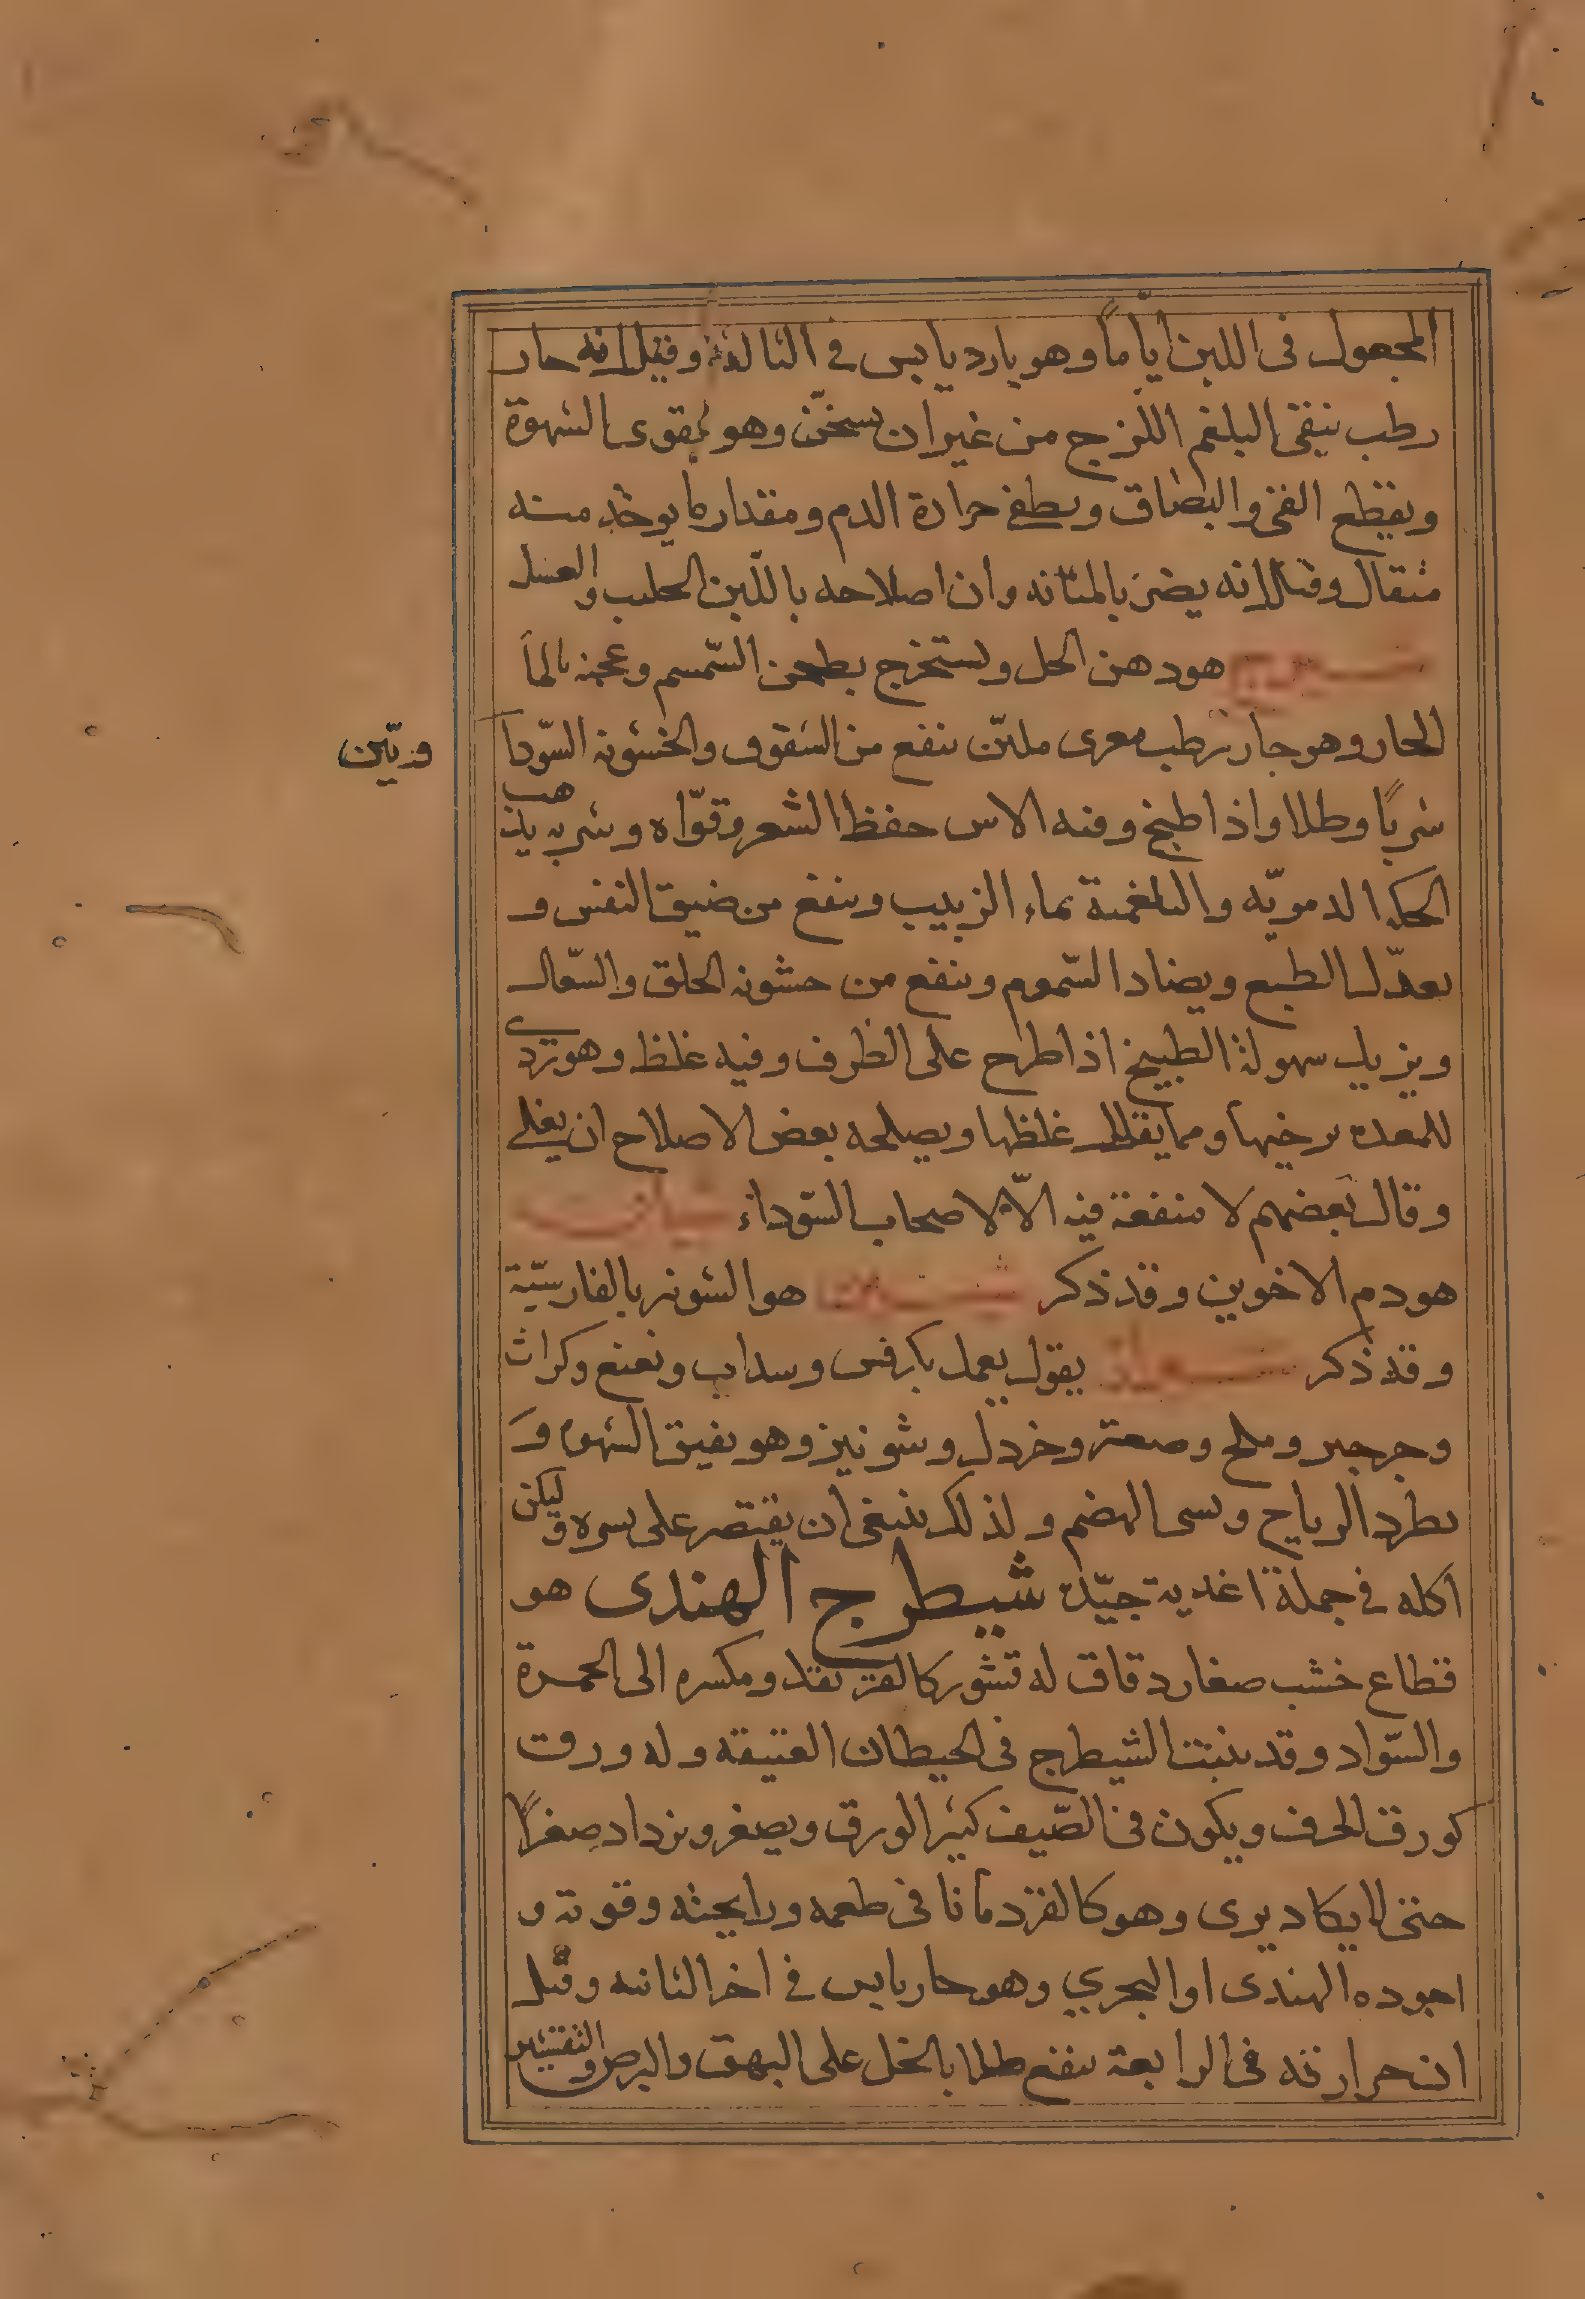 المجعول فى اللبن ايّاماً وهو بارد يابس فى الثالثة وقيل انه حار
رطب ينقى البلغم اللزج من غير ان يسخّن وهو يقوى الشهوة
ويقطع القى والبصاق ويطفى حرارة الدم ومقدار ما يوخذ منه
مثقال وقيل انه يضرّ بالمثانه وان اصلاحه باللّبن الحليب والعسل
هو دهن الحل ويستخرج بطحن السّمسم وعجنه بالمآ
الحار وهو حار رطب مغرى مليّن ينفع من الشقوق والخشونه السّودا
وتيّن
شربًا وطلا واذا طبخ وفيه الاس حفظ الشعر وقوّاه وشربه يذهب
الحكه الدمويّه والبلغمية بماء الزبيب وينفع من ضيق النفس و
يعدّل الطبع ويضاد السّموم وينفع من خشونه الحلق والسّعال
ويزيل سهولة الطبيخ اذا طرح على الظرف وفيه غلظ وهو ردى
للمعده يرخيها ومما يقلل غلظها ويصلحه بعض الاصلاح ان يغلى
وقال بعضهم لا منفعة فيه الّا لاصحاب السّوداء شيان
هو دم الاخوين وقد ذكر هو الشونيز بالفارسيّة
وقد ذكر يقول يعمل بكرفس وسداب ونعنع وكراث
وجرجير وملح وصعتر وخردل وشونيز وهو يفيق الشهوه و
يطرد الرياح ويسى الهضم ولذلك ينبغى ان يقتصر على يسيره وليكن
اكله فى جملة اغدية جيّده شيطرج الهندى هو
قطاع خشب صغار دقاق له قشور ومكسره الى الحمرة
والسّواد وقد ينبت الشيطرج فى الحيطان العتيقه وله ورق
كورق الحرف ويكون فى الصّيف كثير الورق ويصغر ويزداد صغراً
حتى لا يكاد يرى وهو كالقردمانا فى طعمه ورايحته وقوته و
اجوده الهندى او البحري وهو حار يابس فى اخر الثانيه وقيل
ان حرارته فى الرابعة ينفع طلا بالخل على البهق والبرص والتقشير